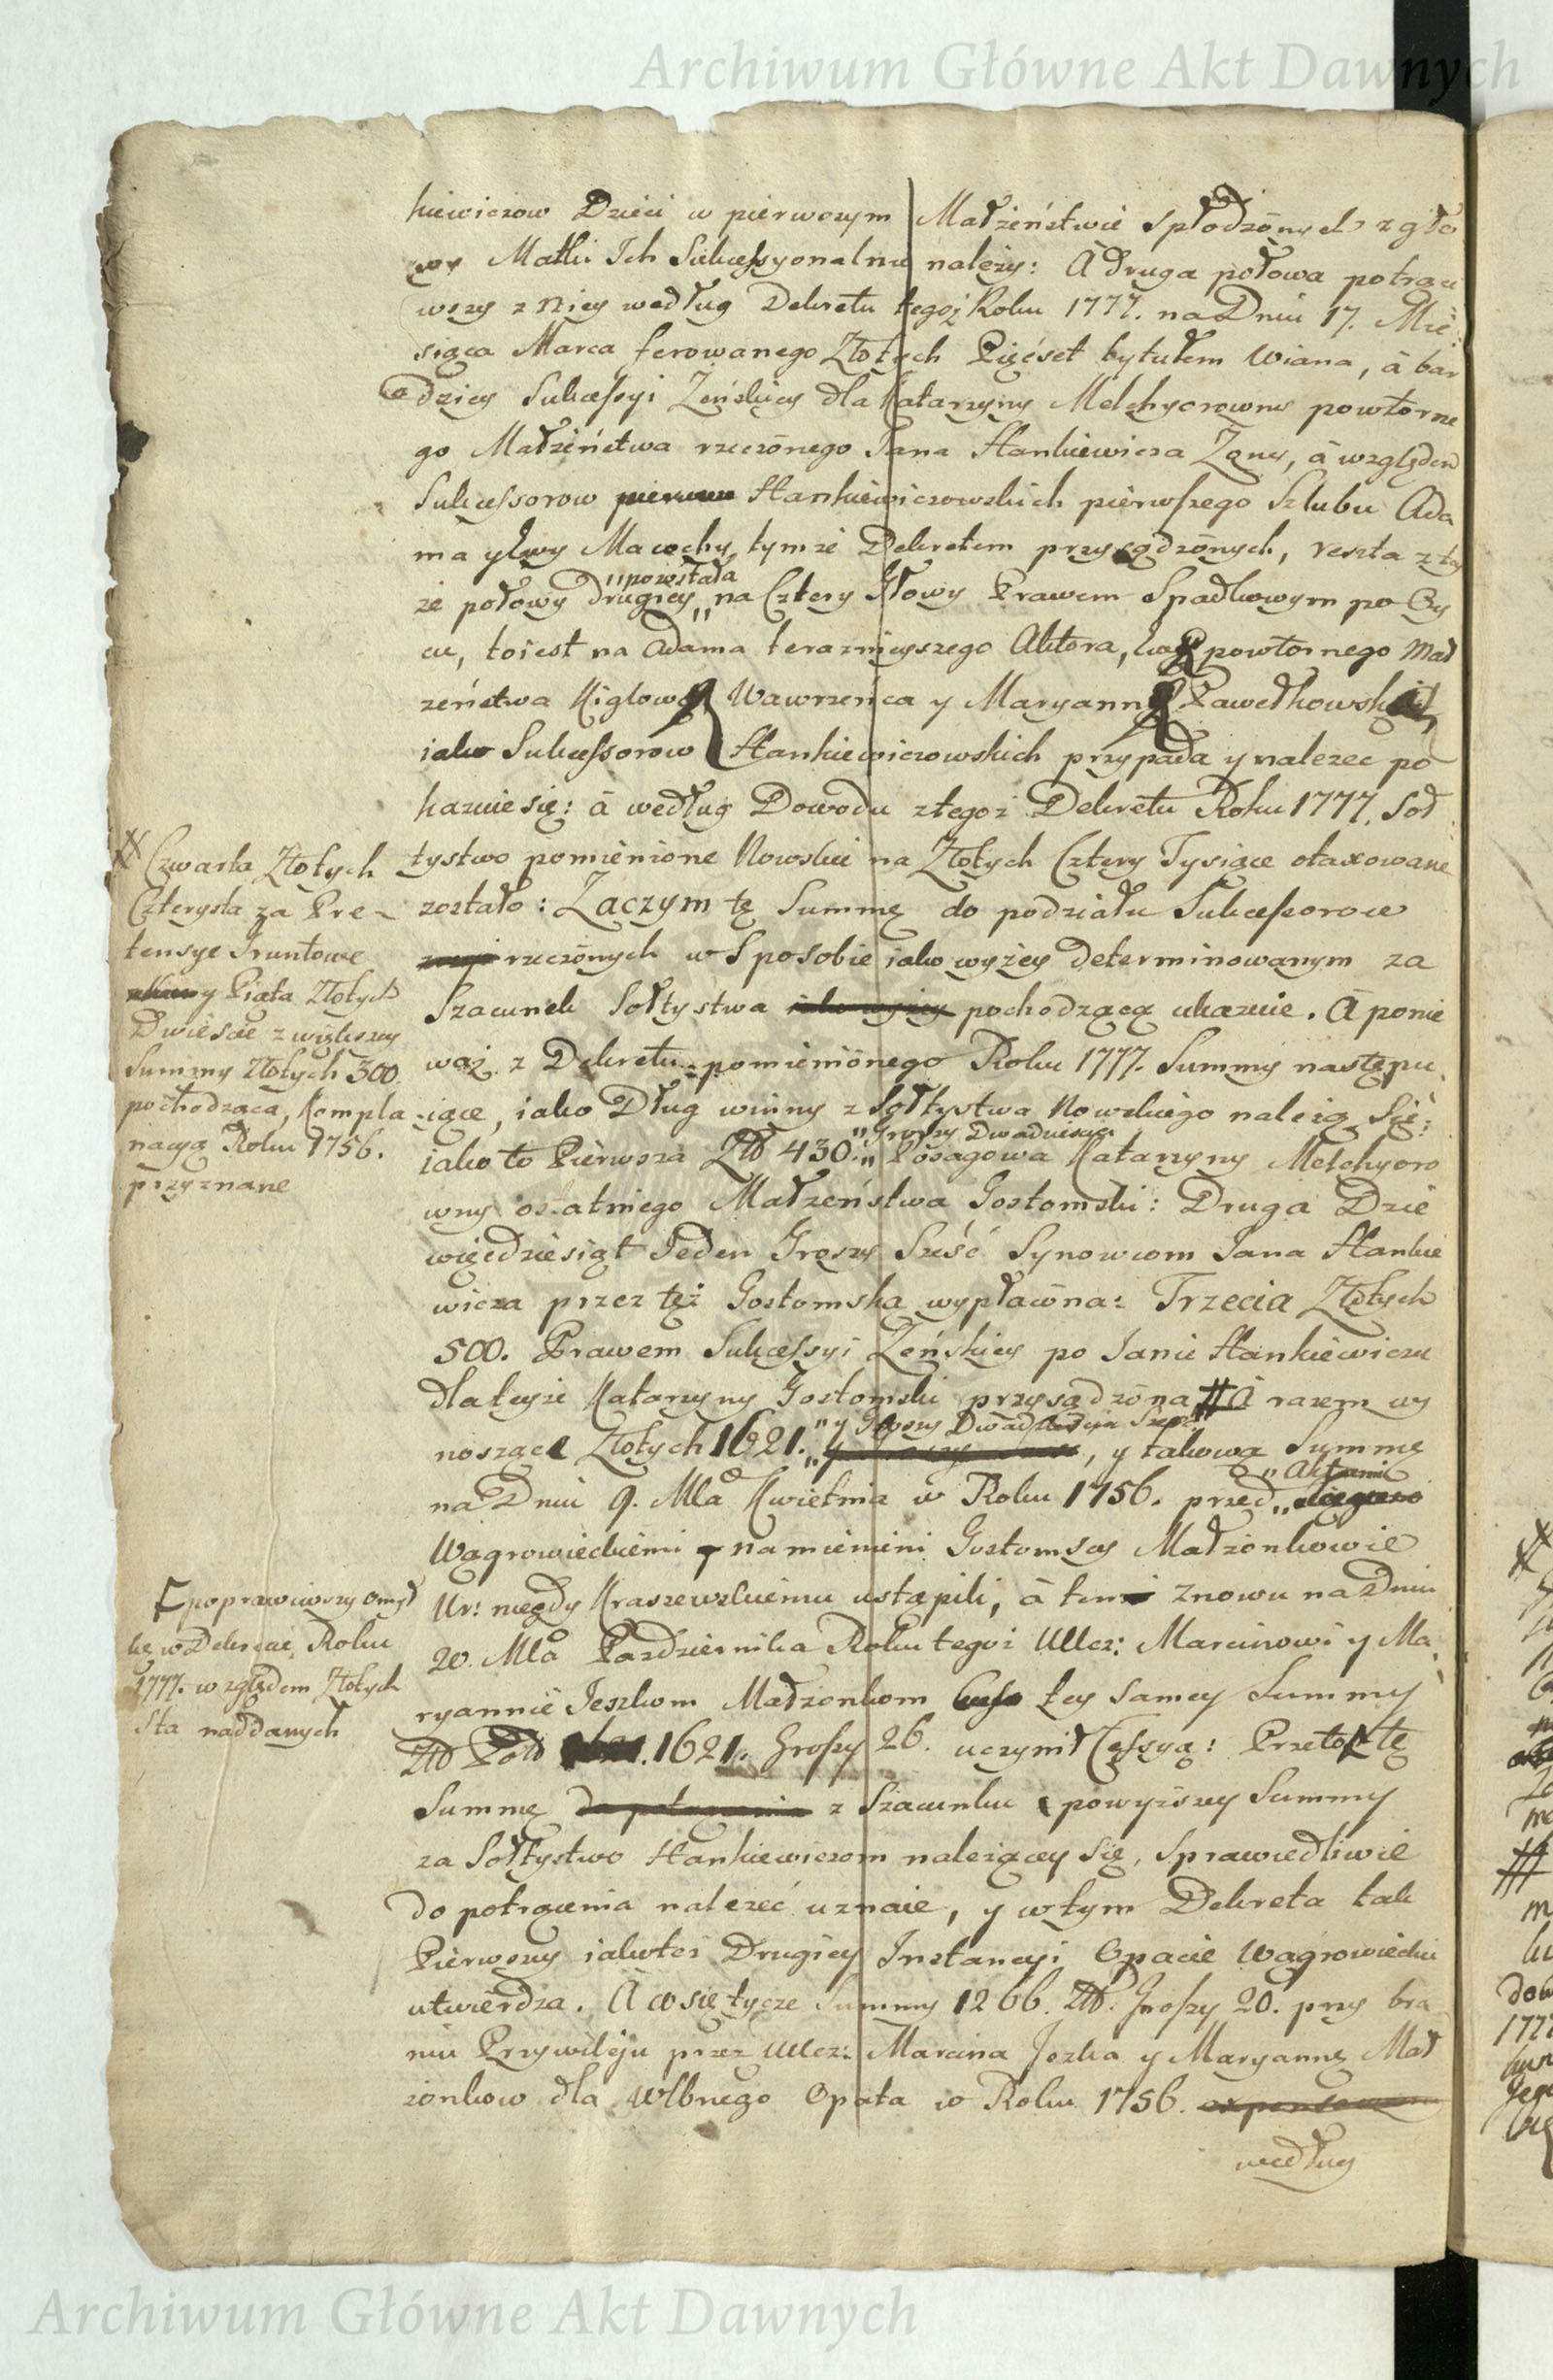 Archiwum Główne Akt Dawnych
kiewiczow Dzieci w pierwszym Małżeństwie spłodzonych z gło
wy Matki Ich Sukcessyonalnie należy: à druga połowa potrąci
wszy z Niey według Dekretu tegoż Roku 1777. na Dniu 17. Mie
siąca Marca ferowanego Złotych Pięćset tytułem Wiana, à bar
dziey Sukcessyi Zeńskiey dla Katarzyny Melchyorowny powtorne
go Małżeństwa rzeczonego Jana Hankiewicza Zony, à względem
Sukcessorow Hankiewiczowskich pierwszego Szlubu Ada
ma y Ewy Macochy tymże Dekretem przysądzonych, reszta z tey
„pozostała
że połowy drugiey „ na Cztery Głowy Prawem Spadkowym po Oy
cu, to iest na Adama teraznieyszego Aktora, powtornego Mał
żeństwa Wawrzeńca y Maryanny
iako Sukcessorow Hankiewiczowskich przypada y nalezec po
kazuie się: à według Dowodu z tegoż Dekretu Roku 1777. Soł
tystwo pomienione Nowskie na Złotych Cztery Tysiące otaxowane
zostało: Zaczym tę Summę do podziału Sukcessorow
rzeczonych w Sposobie iako wyżey determinowanym za
Szacunek Sołtystwa iako wyżey pochodzącą ukazuie. à ponie
waż z Dekretu pomienionego Roku 1777. Summy następu
iące, iako Dług winny z Sołtystwa Nowskiego należą Się:
„Groszy Dwadzieścia
iako to Pierwsza Złł 430. „ Posagowa Katarzyny Melchyoro
wny ostatniego Małżeństwa Gostomski: Druga Dzie
więćdziesiąt Jeden Groszy Sześć Synowcom Jana Hankie
wicza przez też Gostomską wypłacona: Trzecia Złotych
500. Prawem Sukcessyi Zeńskiey po Janie Hankiewiczu
dla teyże Katarzyny Gostomski przysądzona # à razem wy
„y Groszy Dwadzieścia Sześć”
noszące Złotych 1621. „ , y takową Summę
„Aktami
na Dniu 9. Mca Kwietnia w Roku 1756. przed „
Wągrowieckiemi namienieni Gostomscy Małżonkowie
Ur: niegdy Kraszewskiemu ustąpili, à ten znowu na Dniu
20. Mca Pazdziernika Roku tegoż Ucz: Marcinowi y Ma
ryannie Jeszkom Małżonkom tey samey Summy
Złł Pol 1621. Groszy 26. uczynił Cessyą: Przeto tę
Summę do potrącenia z Szacunku powyższey Summy
za Sołtystwo Hankiewiczom należącey się, Sprawiedliwie
do potrącenia należeć uznaie, y w tym Dekreta tak
Pierwszey iakoteż Drugiey Instancyi Opacie Wągrowieckie
utwierdza. à co się tycze Summy 1266. Złł. Groszy 20. przy bra
niu Przywileju przez Ucz: Marcina Jeszka y Maryannę Mał
żonkow dla Wlbnego Opata w Roku 1756.
według
Czwarta Złotych
Czterysta za Pre
tensye Gruntowe
y Piąta Złotych
Dwieście z większey
Summy Złotych 300.
pochodząca, Kompla
nacyą Roku 1756.
przyznane
poprawiwszy omył
kę w Dekrecie Roku
1777. względem Złotych
Sta naddanych
Archiwum Główne Akt Dawnych